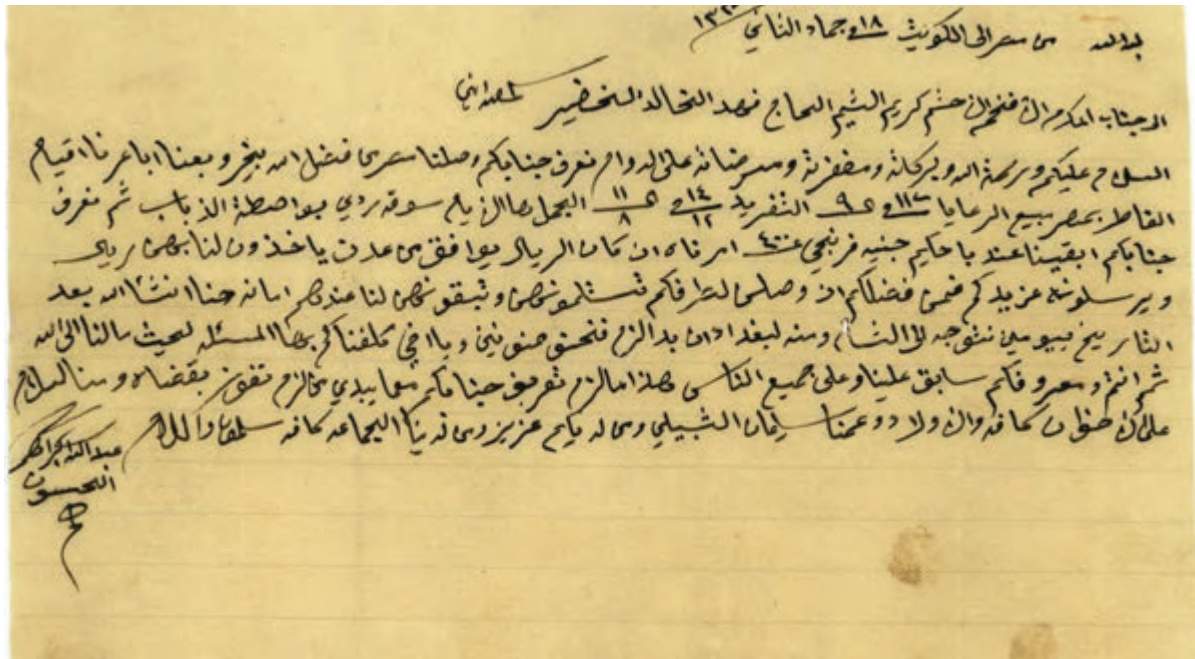 بمنه من مصر الى الكويت ١٨ في جماد الثاني
الى جناب المكرم الافخم الاحشم كريم الشيم الحاج فهد الخالد الخضير سلمه الله
السلام عليكم ورحمة الله وبركاته ومغفرته ومرضاته على الدوام نعرف جنابكم وصلنا مصر من فضل الله بخير وبعنا اباعرنا اقيام
القاط بمصر بيع الرعايا في التفريد ١٤/١٢ في ١١/٨ الجمل سوقه ردي بواصطة الذباب ثم نعرف
جنابكم ابقينا عند باحكيم جنيه فرنجي ٤٠٠ امرناه ان كان الريال يوافق من عدن ياخذون لنا بهن ريال
ويرسلونه عن يدكم فمن فضلكم ان وصلن لطرفكم تستلمونهن وتبقونهن لنا عندكم امانه حنا انشاالله بعد
التاريخ بيومين نتوجه الى الشام ومنه لبغداد ان بدا لازم كلفناكم بهاالمسئله لحيث مالنا الا الله
ثم انتم ومعروفكم سابق علينا وعلى جميع الناس هذا مالزم تعريف جنابكم معما يبدي من لازم تفون بقضاه ومنا السلام
على الاخوان كافه والاولاد وعمنا سليمان الشبيلي ومن لديكم عزيز ومن لدينا الجماعه كافه يسلمون والسلام
عبدالله
الحسون